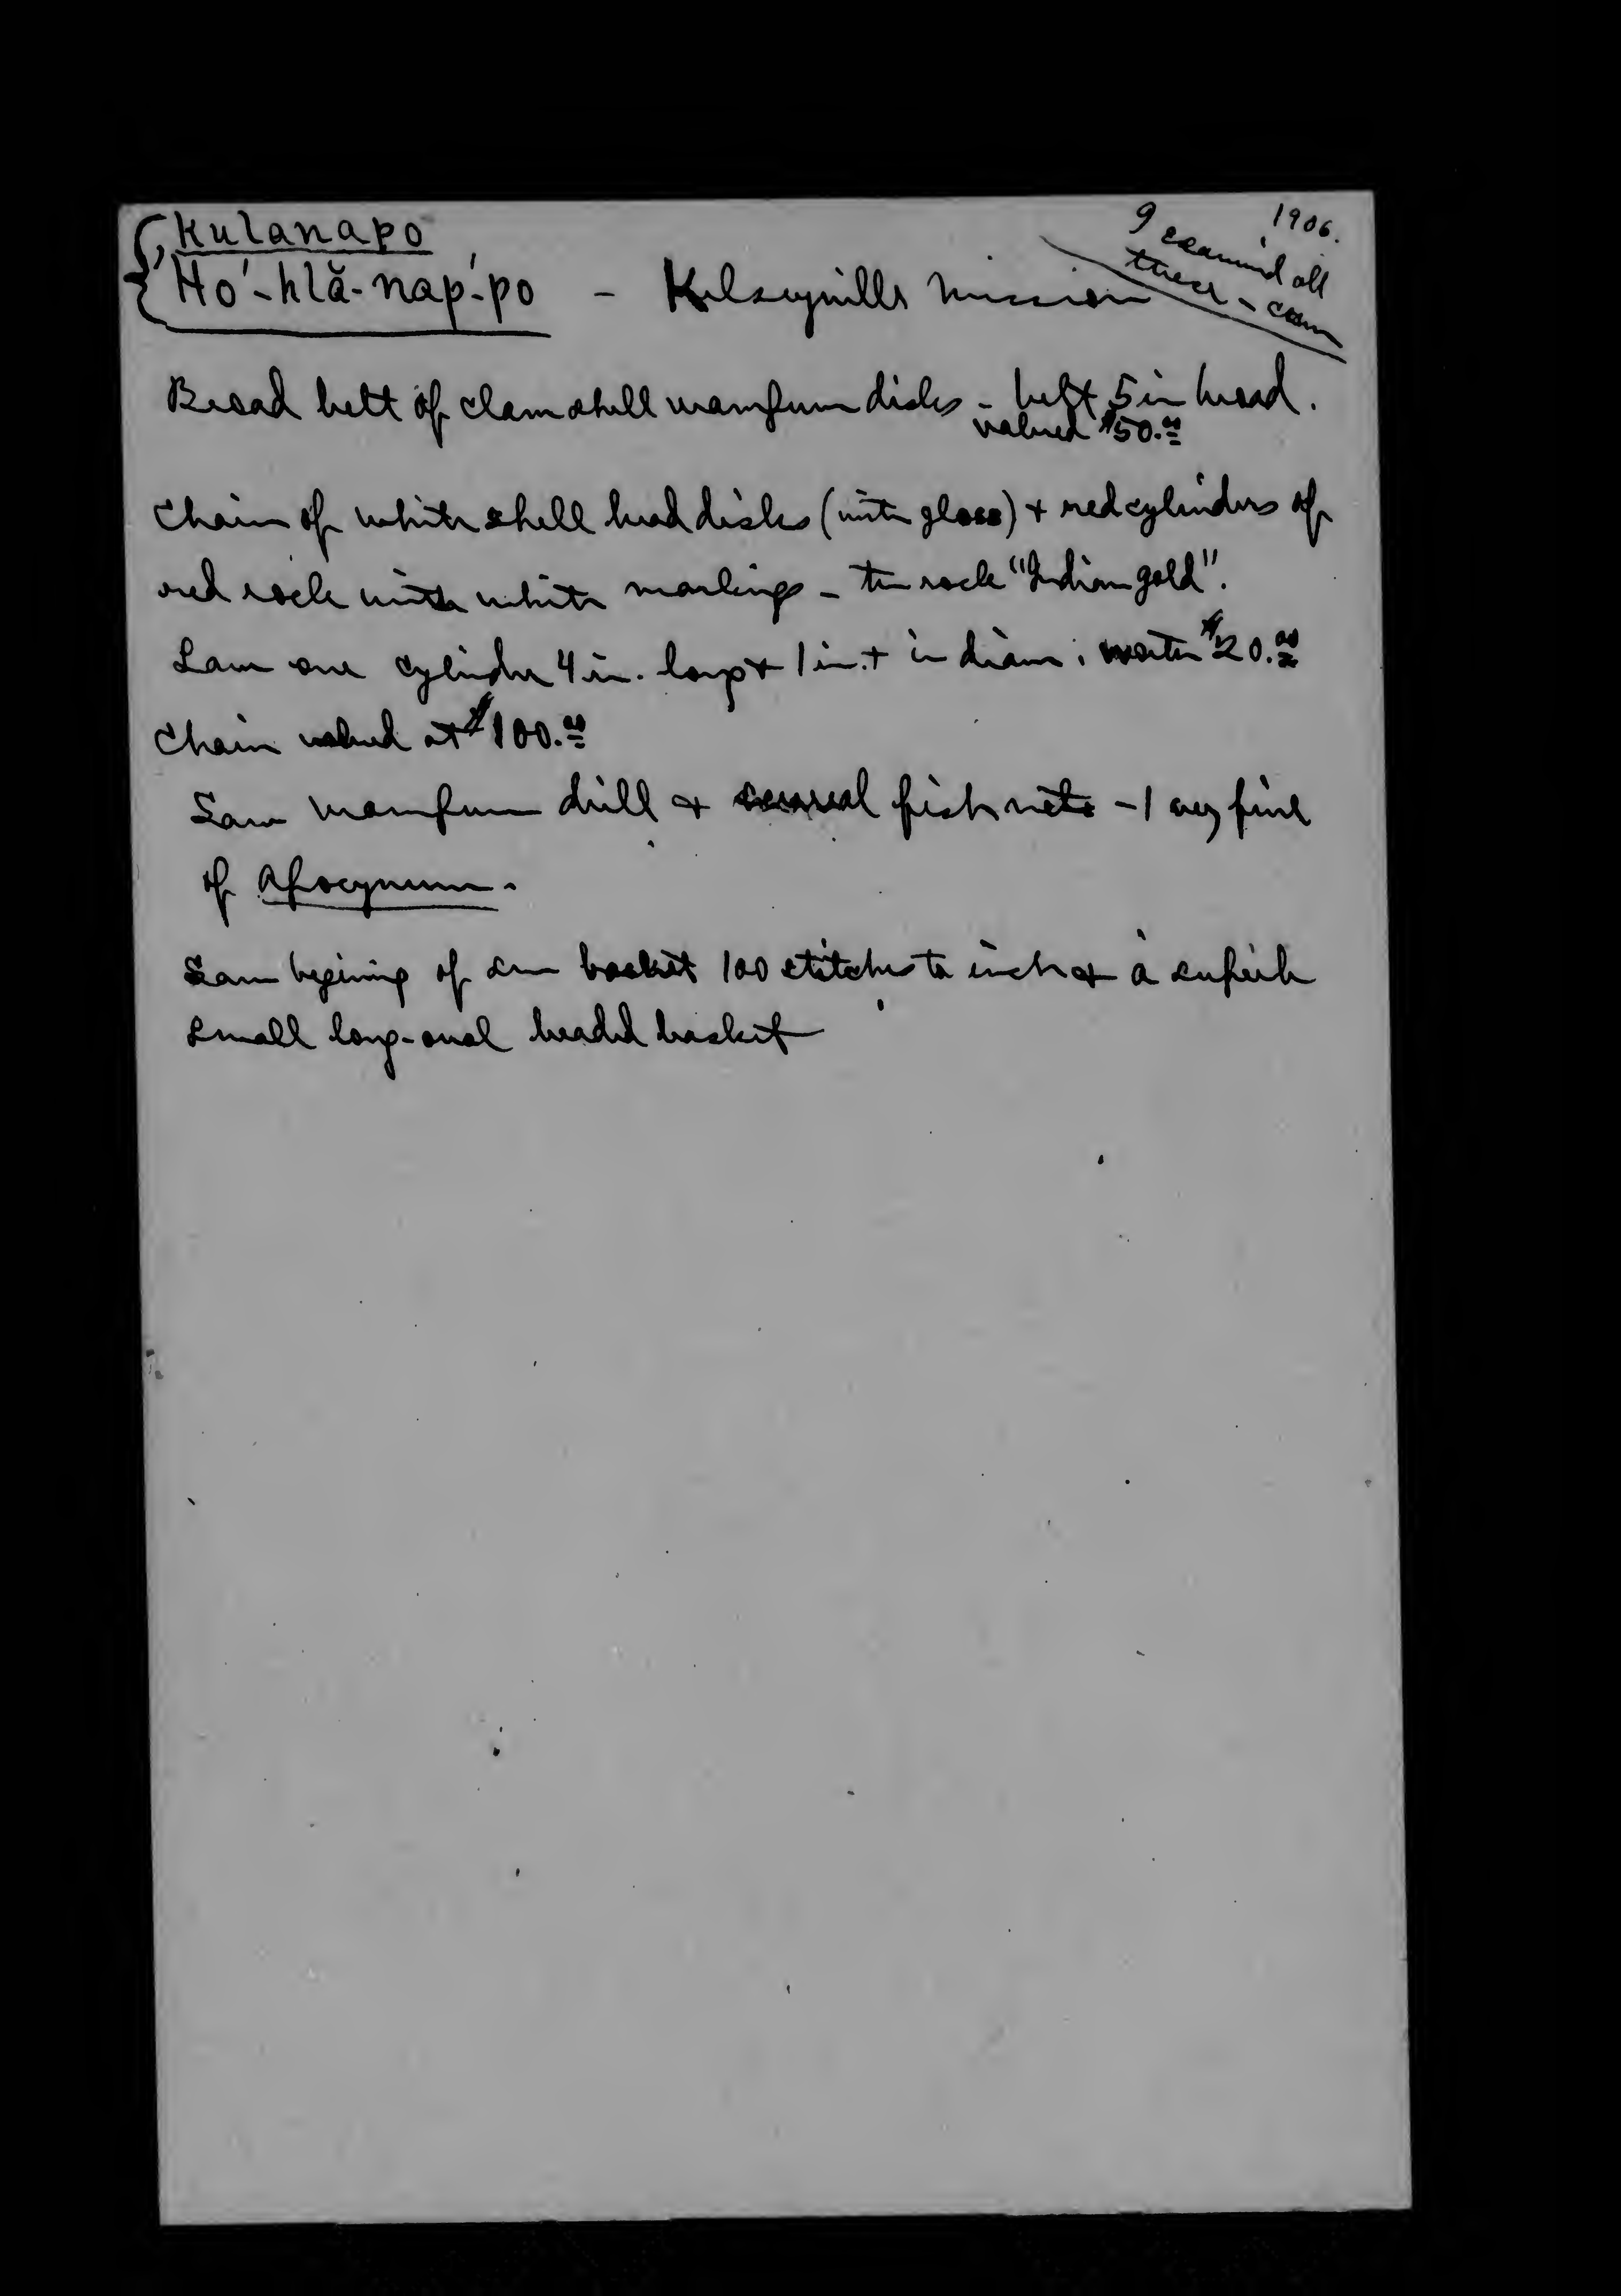 Kulanapo
Ho´-hlă-nap´-po - Kelseyville Mission
1906.
I examined all
these - CHM
Broad belt of clam shell wampum disks - belt 5 in broad.
valued $50.00
Chain of white shell bead disks (with gloss) + red cylinders of
red rock with white markings - the rock "Indian gold".
Saw one cylinder 4 in. long & 1 in. + in diam; worth $20.00
Chain valued at $100.00
Saw wampum drill & several fish nets - 1 very fine
of Apocynum.
Saw begining of basket 100 stitches to inch & a superb
small long-oval beaded basket